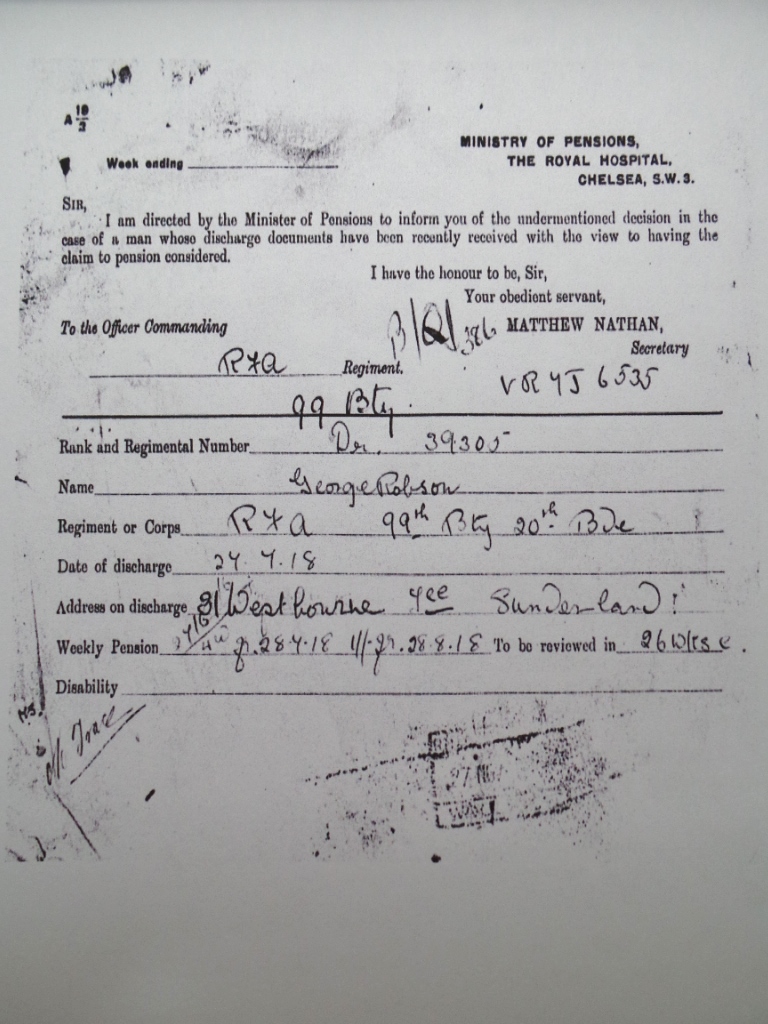 A 10/3
Week ending
MINISTRY OF PENSIONS,
THE ROYAL HOSPITAL,
CHELSEA, S.W.3.
SIR,
I am directed by the Minister of Pensions to inform you of the undermentioned decision in the
case of a man whose discharge documents have been recently received with the view to having the
claim to pension considered.
I have the honour to be, Sir,
Your obedient servant,
To the Officer Commanding
MATTHEW NATHAN,
Secretary
RFA Regiment.
99 Bty.
6535
Rank and Regimental Number Dr. 39305
Name George Robson
Regiment or Corps RFA 99th Bty 20th Bde
Date of discharge 27.7.18
Address on discharge 31 Westbourne Tce Sunderland
Weekly Pension fr. 28.7.18 11/- fr. 28.8.18 To be reviewed in 26 Wks
Disability
Trace